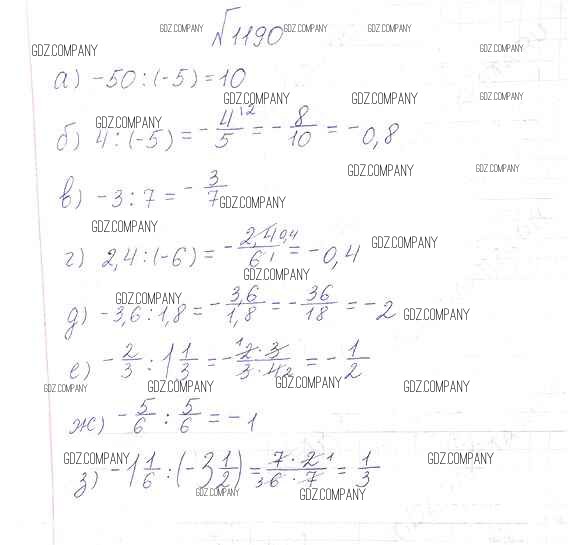 №1190
GDZ.COMPANY GDZ.COMPANY GDZ.COMPANY
GDZ.COMPANY GDZ.COMPANY
а) -50:(-5)=10
GDZ.COMPANY GDZ.COMPANY GDZ.COMPANY
GDZ.COMPANY
б) 4:(-5) = -4/5 ·2 = -8/10 = -0,8
GDZ.COMPANY GDZ.COMPANY
в) -3:7 = -3/7
GDZ.COMPANY
GDZ.COMPANY
г) 2,4:(-6) = -2,4 0,4/6 1 = -0,4
GDZ.COMPANY
GDZ.COMPANY
GDZ.COMPANY
д) -3,6:1,8 = -3,6/1,8 = -36/18 = -2
GDZ.COMPANY
е) -2/3 : 1 1/3 = -1 2·3/3·4 2 = -1/2
GDZ.COMPANY GDZ.COMPANY GDZ.COMPANY GDZ.COMPANY
ж) -5/6 : 5/6 = -1
GDZ.COMPANY GDZ.COMPANY
з) -1 1/6 : (-3 1/2) = 7·2 1/3 6·7 = 1/3
GDZ.COMPANY GDZ.COMPANY